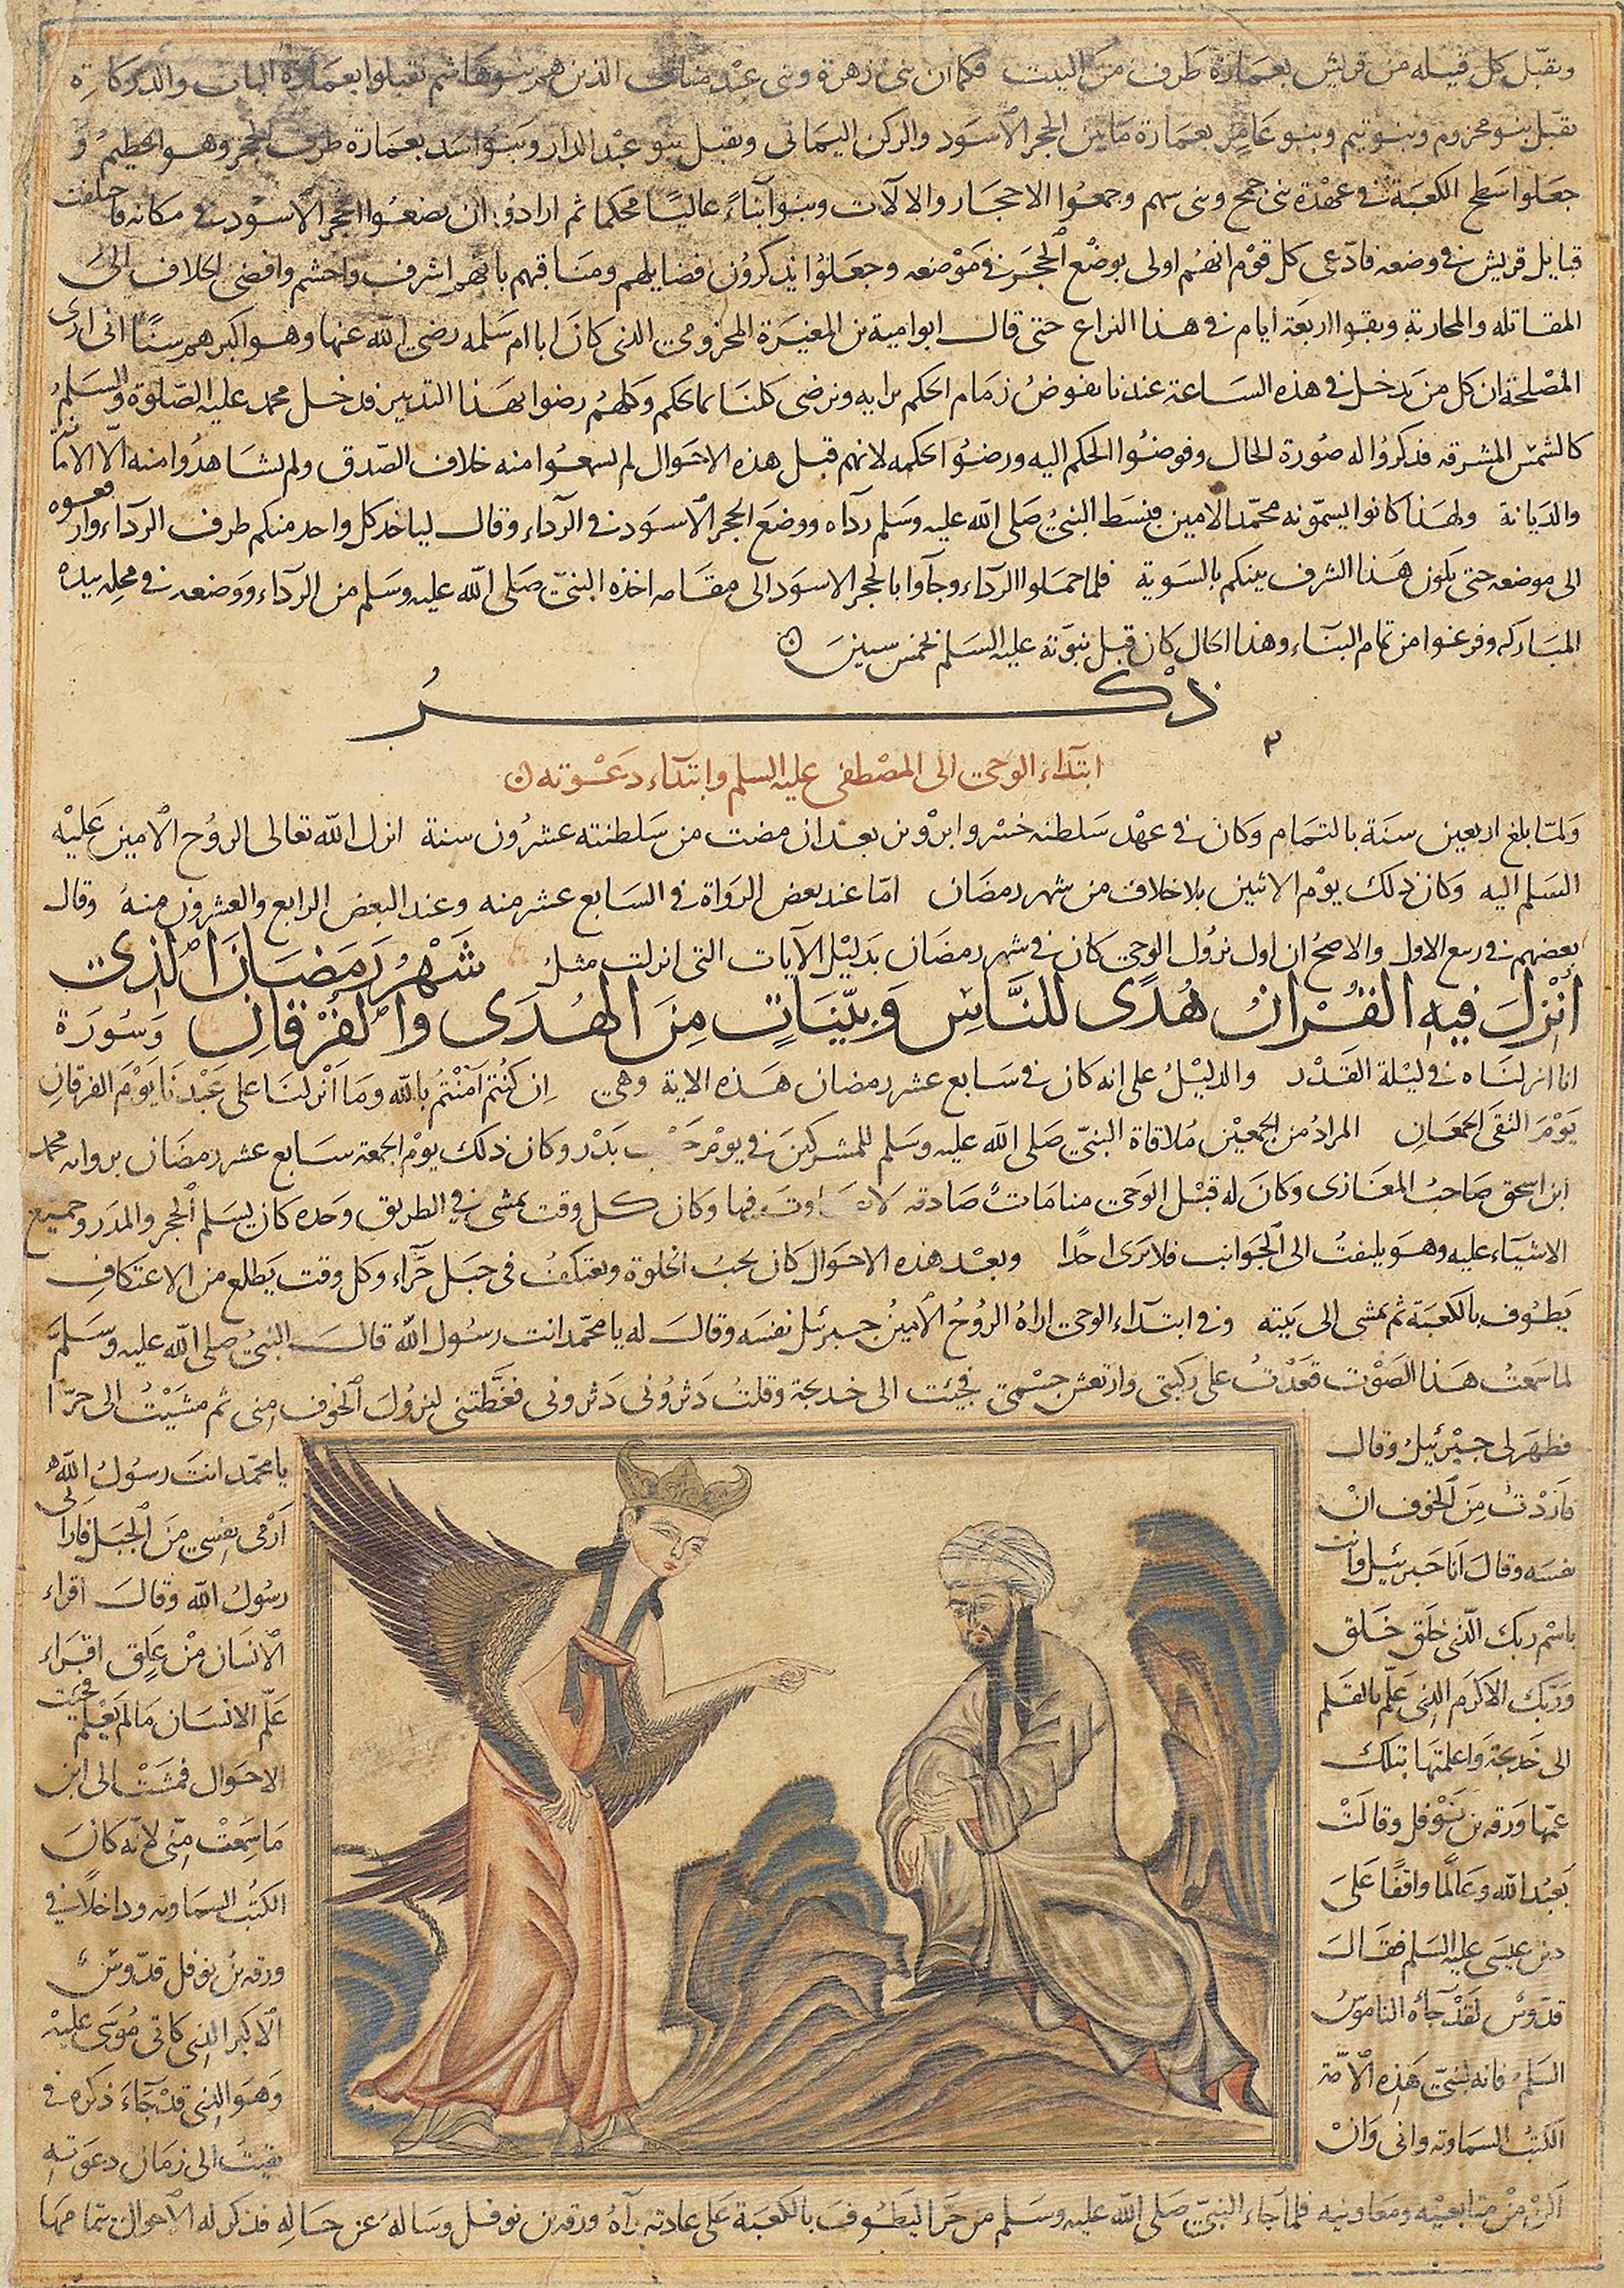 وتقبّل كل قبيله من قريش بعمارة طرف من البيت فكما ان بنى زهرة وبنى عبد مناف الذين هم بنو هاشم تقبلوا بعمارة الباب والدكر كاره
تقبل بنو مخزوم وبنو تيم وبنو عامر بعمارة ما بين الحجر الاسود والركن اليمانى وتقبل بنو عبد الدار وبنو اسد بعمارة طرف الحجر وهو الحطيم و
جعلوا سطح الكعبة فى عهدة بنى جمح وبنى سهم وجمعوا الاحجار والالآت وبنوا بناءً عاليًا محكما ثم ارادوا ان يضعوا الحجر الاسود فى مكانه فاختلفت
قبايل قريش فى وضعه فادّعى كل قوم انهم اولى بوضع الحجر فى موضعه وجعلوا يذكرون فضايلهم ومناقبهم بانهم اشرف واحشم وافضى الخلاف الى
المقاتله والمحاربة وبقوا اربعة ايام فى هذا النزاع حتى قال ابو امية بن المغيرة المخزومى الذى كان ابا ام سلمه رضى الله عنها وهو اكبرهم سنًا انى ارى
المصلحة ان كل من يدخل فى هذه الساعة عندنا نفوض زمام الحكم برايه ونرضى كلنا بما حكم وكلهم رضوا بهذا التدبير فدخل محمد عليه الصلوة والسلم
كالشمس المشرقه فذكروا له صورة الحال وفوضوا الحكم اليه ورضوا بحكمه لانهم قبل هذه الاحوال لم يسمعوا منه خلاف الصدق ولم يشاهدوا منه الّا الامانة
والديانة ولهذا كانوا يسمّونه محمّد الامين فبسط النبىُ صلى الله عليه وسلم رداه ووضع الحجر الاسود فى الرداء وقال لياخذ كل واحد منكم طرف الرداء وارفعوه
الى موضعه حتى يكون هذا الشرف بينكم بالسوية فلما حملوا الرداء وجاوا بالحجر الاسود الى مقامه اخذه النبىّ صلى الله عليه وسلم من الرداء ووضعه فى محله بيده
المباركه وفرغوا من تمام البناء وهذا الحال كان قبل نبوّته عليه السلم بخمس سنين
ذكر
ابتداء الوحى الى المصطفى عليه السلم وابتداء دعوته
ولمّا بلغ اربعين سنة بالتمام وكان فى عهد سلطنه خسرو ابرويز بعد ان مضت من سلطنته عشرون سنة انزل الله تعالى الروح الامين عليه
السلم اليه وكان ذلك يوم الاثنين بلا خلاف من شهر رمضان امّا عند بعض الرواة فى السابع عشر منه وعند البعض الرابع والعشرون منه وقال
بعضهم فى ربيع الاول والاصح ان اول نزول الوحى كان فى شهر رمضان بدليل الآيات التى انزلت مثل شَهْرُ رَمَضَانَ الذى
أُنْزِلَ فيهِ القُرْانُ هُدًى للنَّاسِ وَبيّنَاتٍ مِنَ الهُدَى والفُرْقانِ وسورة
انا انزلناه فى ليلة القدر والدليل على انه كان فى سابع عشر رمضان هذه الاية وهى ان كنتم آمنتم بالله وما انزلنا على عبدنا يوم الفرقان
يوم التقى الجمعان المراد من الجمعين ملاقاة النبىّ صلى الله عليه وسلم للمشركين فى يوم بدر وكان ذلك يوم الجمعة سابع عشر رمضان بروايه محمد
ابن اسحق صاحب المغازى وكان له قبل الوحى منامات صادقه فيها وكان كل وقت يمشى فى الطريق وحده كان يسلم الحجر والمدر وجميع
الاشياء عليه وهو يلتفت الى الجوانب فلا يرى احدًا وبعد هذه الاحوال كان يحب الخلوة ويعتكف فى جبل حراء وكل وقت يطلع من الاعتكاف
يطوف بالكعبة ثم يمشى الى بيته وفى ابتداء الوحى اراه الروح الامين جبرئيل نفسه وقال له يا محمّد انت رسول الله قال النبىُ صلى الله عليه وسلم
لما سمعت هذا الصوت قعدت على ركبتى وارتعش جسمى فجئت الى خديجة وقلت دثرونى دثرونى فغطّتنى لنزول الخوف منى ثم مشيت الى حرا
فظهر لى جبرئيل وقال يا محمّد انت رسول الله
فاردت من الخوف ان ارمى نفسى من الجبل فارانى
نفسه وقال انا جبرئيل وانت رسول الله وقال اقراء
باسم ربك الذى خلق خلق الانسان من علق اقراء
وربّك الاكرم الذى علّم بالقلم علّم الانسان ما لم يعلم فجئت
الى خديجة واعلمتها بتلك الاحوال فمشت الى ابن
عمّها ورقه بن نوفل وقالت ما سمعت منّى لانّه كان
يعبد الله وعالمًا واقفًا على الكتب السماويه وداخلًا فى
دين عيسى عليه السلم فقال ورقه بن نوفل قدّوسٌ
قدّوس لقد جاءه الناموس الاكبر الذى كاتى موسى عليه
السلم فانه لنبىّ هذه الامّة وهو الذى قد جاء ذكره فى
الكتب السماويه وانى وان بقيت الى زمان دعوته
اكن من متابعيه ومعاونيه فلما جاء النبىّ صلى الله عليه وسلم من حرا ليطوف بالكعبة على عادته رآه ورقه بن نوفل وساله عن حاله فذكر له الاحوال بتمامها